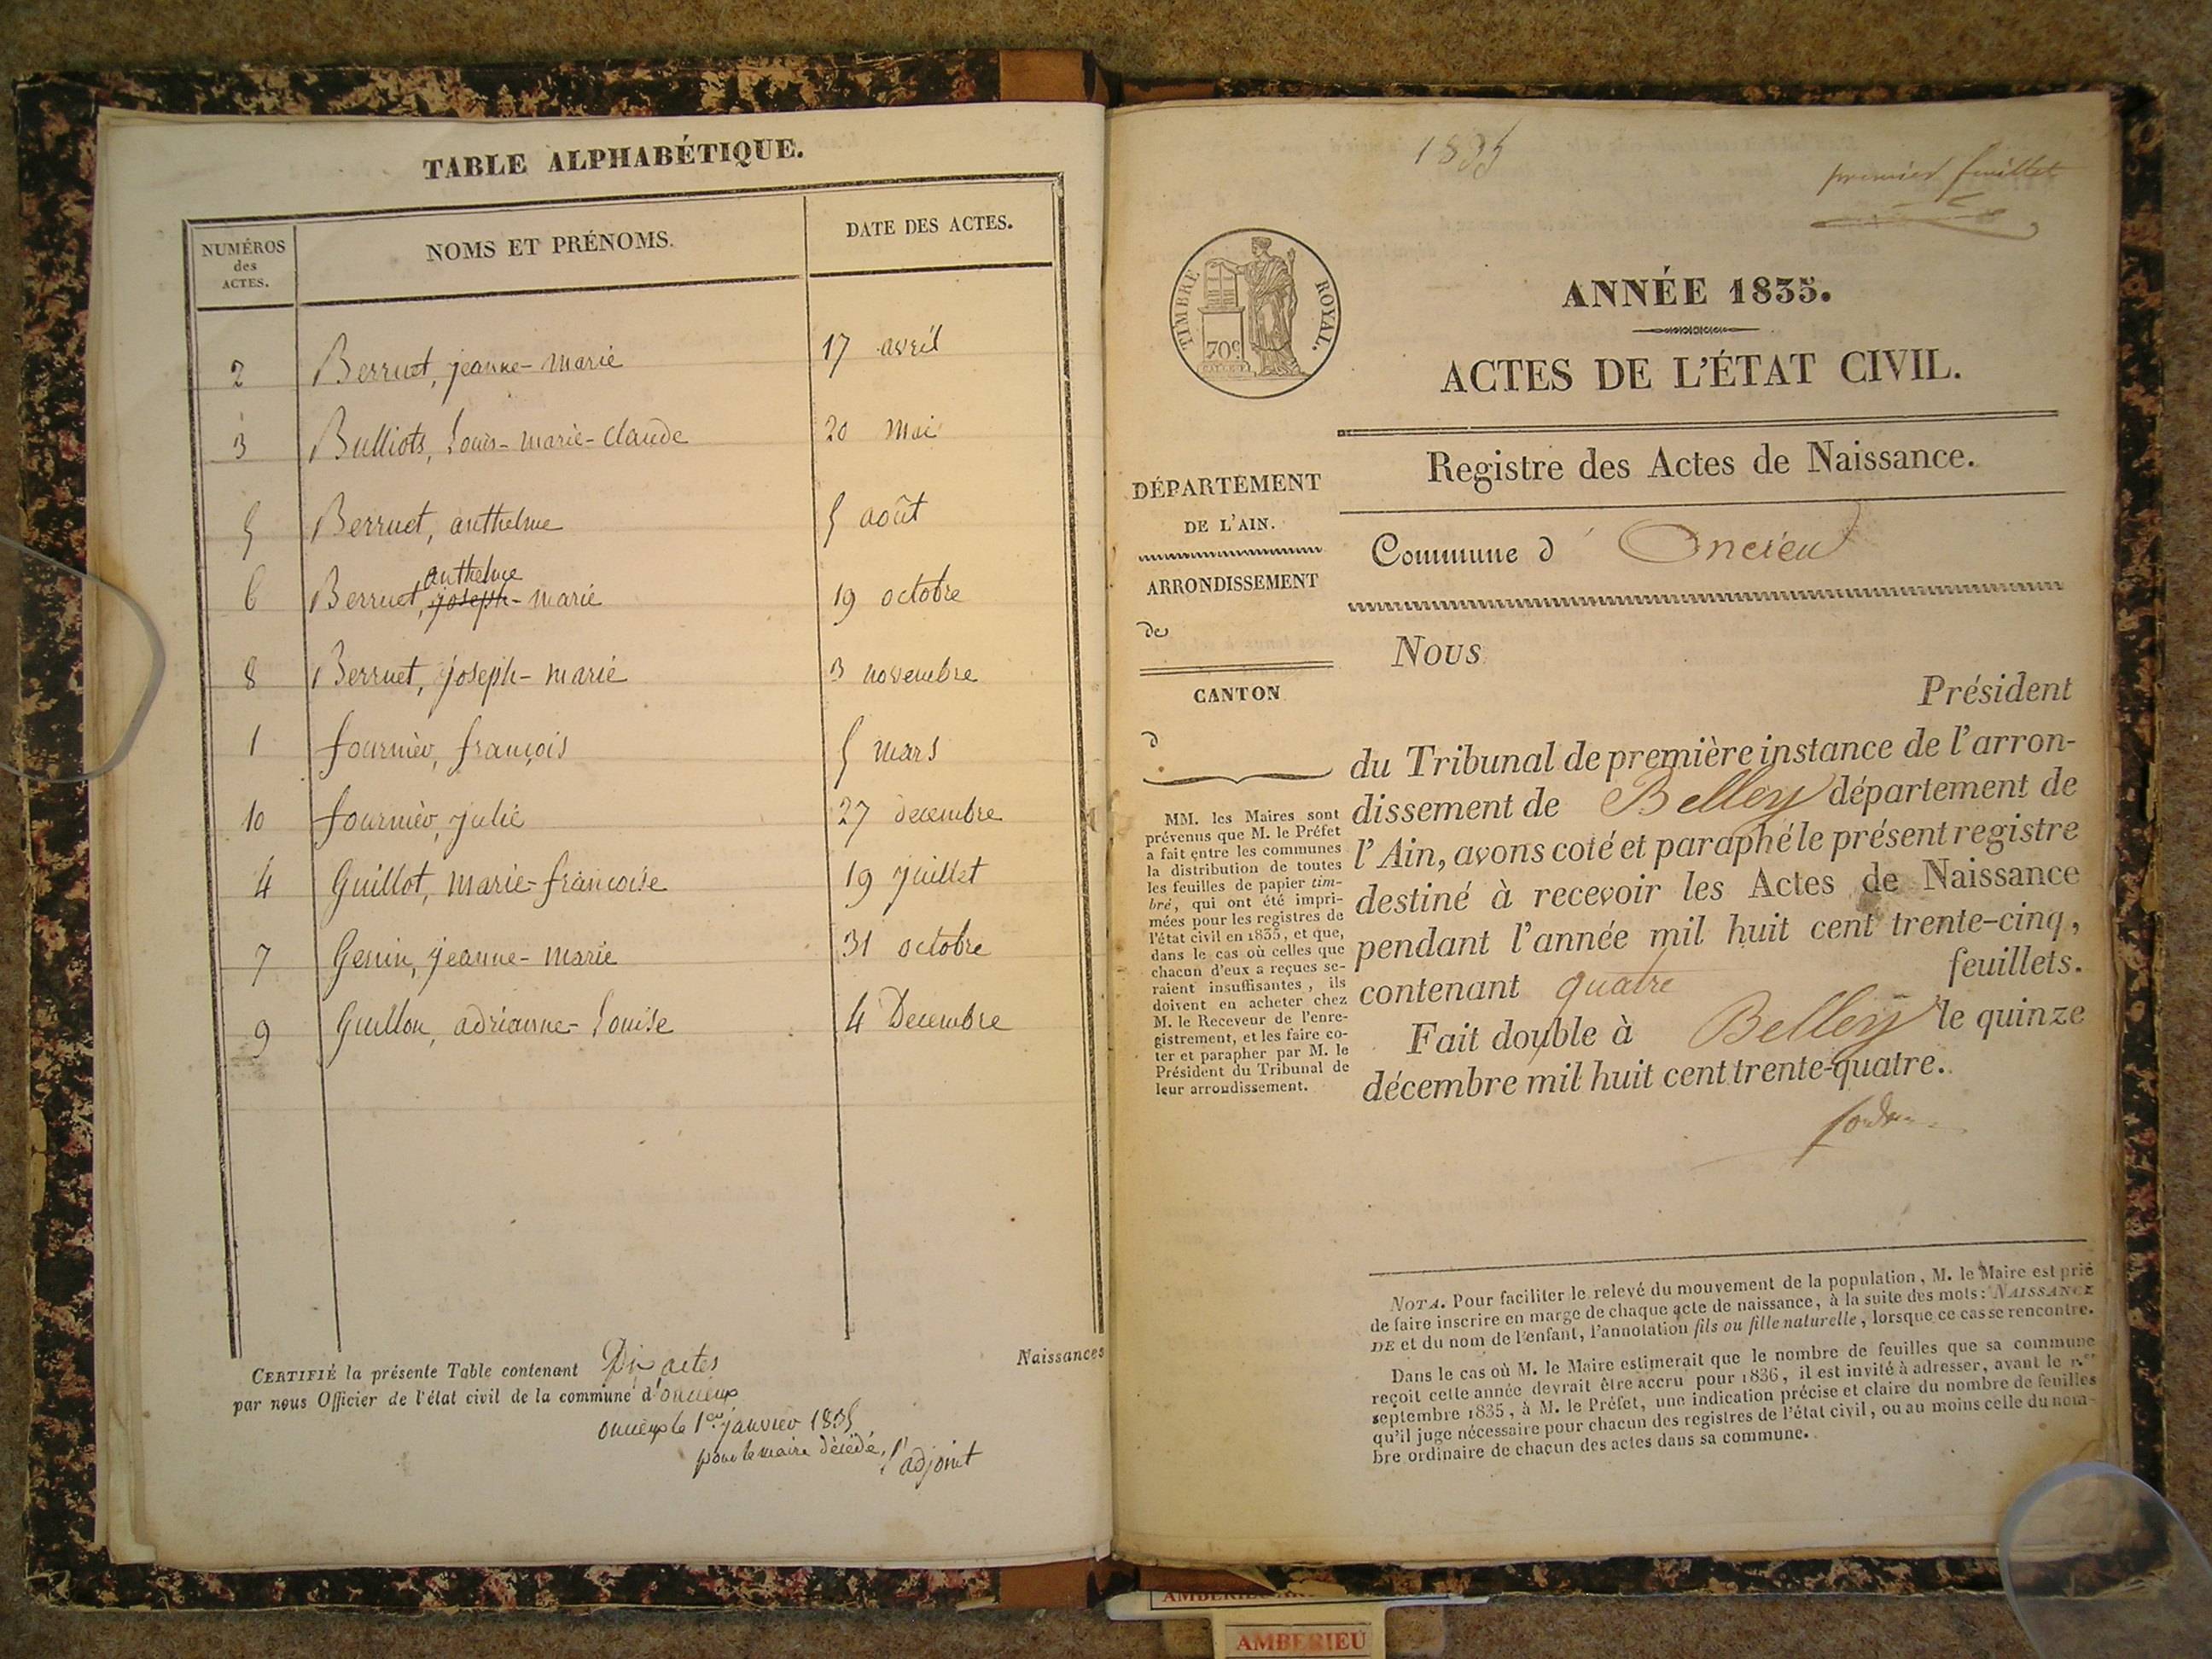 TABLE ALPHABÉTIQUE.
NUMÉROS des ACTES. NOMS ET PRÉNOMS. DATE DES ACTES.
2 Berruet, jeanne-marie 17 avril
3 Bulliots, Louis-marie-claude 20 mai
5 Berruet, anthelme 5 août
anthelme
6 Berruet, joseph-marie 19 octobre
8 Berruet, joseph-marie 3 novembre
1 fournier, françois 5 mars
10 fournier, julie 27 decembre
4 Guillot, marie-francoise 19 juillet
7 Genin, jeanne-marie 31 octobre
9 Guillon, adrianne-Louise 4 Decembre
CERTIFIÉ la présente Table contenant Dix actes Naissances
par nous Officier de l'état civil de la commune d'oncieux
oncieux le 1er janvier 1835
pour le maire décédé, l'adjoint
1835
premier feuillet
TIMBRE ROYAL.
70c
ANNÉE 1835.
ACTES DE L'ÉTAT CIVIL.
Registre des Actes de Naissance.
Commune d' Oncieu
DÉPARTEMENT
DE L'AIN.
ARRONDISSEMENT
de
CANTON
d
MM. les Maires sont
prévenus que M. le Préfet
a fait entre les communes
la distribution de toutes
les feuilles de papier tim-
bré, qui ont été impri-
mées pour les registres de
l'état civil en 1835, et que,
dans le cas où celles que
chacun d'eux a reçues se-
raient insuffisantes, ils
doivent en acheter chez
M. le Receveur de l'enre-
gistrement, et les faire co-
ter et parapher par M. le
Président du Tribunal de
leur arrondissement.
Nous
Président
du Tribunal de première instance de l'arron-
dissement de Belley département de
l'Ain, avons coté et paraphé le présent registre
destiné à recevoir les Actes de Naissance
pendant l'année mil huit cent trente-cinq,
contenant quatre feuillets.
Fait double à Belley le quinze
décembre mil huit cent trente-quatre.
NOTA. Pour faciliter le relevé du mouvement de la population, M. le Maire est prié
de faire inscrire en marge de chaque acte de naissance, à la suite des mots: NAISSANCE
DE et du nom de l'enfant, l'annotation fils ou fille naturelle, lorsque ce cas se rencontre.
Dans le cas où M. le Maire estimerait que le nombre de feuilles que sa commune
reçoit cette année devrait être accru pour 1836, il est invité à adresser, avant le 1.er
septembre 1835, à M. le Préfet, une indication précise et claire du nombre de feuilles
qu'il juge nécessaire pour chacun des registres de l'état civil, ou au moins celle du nom-
bre ordinaire de chacun des actes dans sa commune.
AMBERIEU